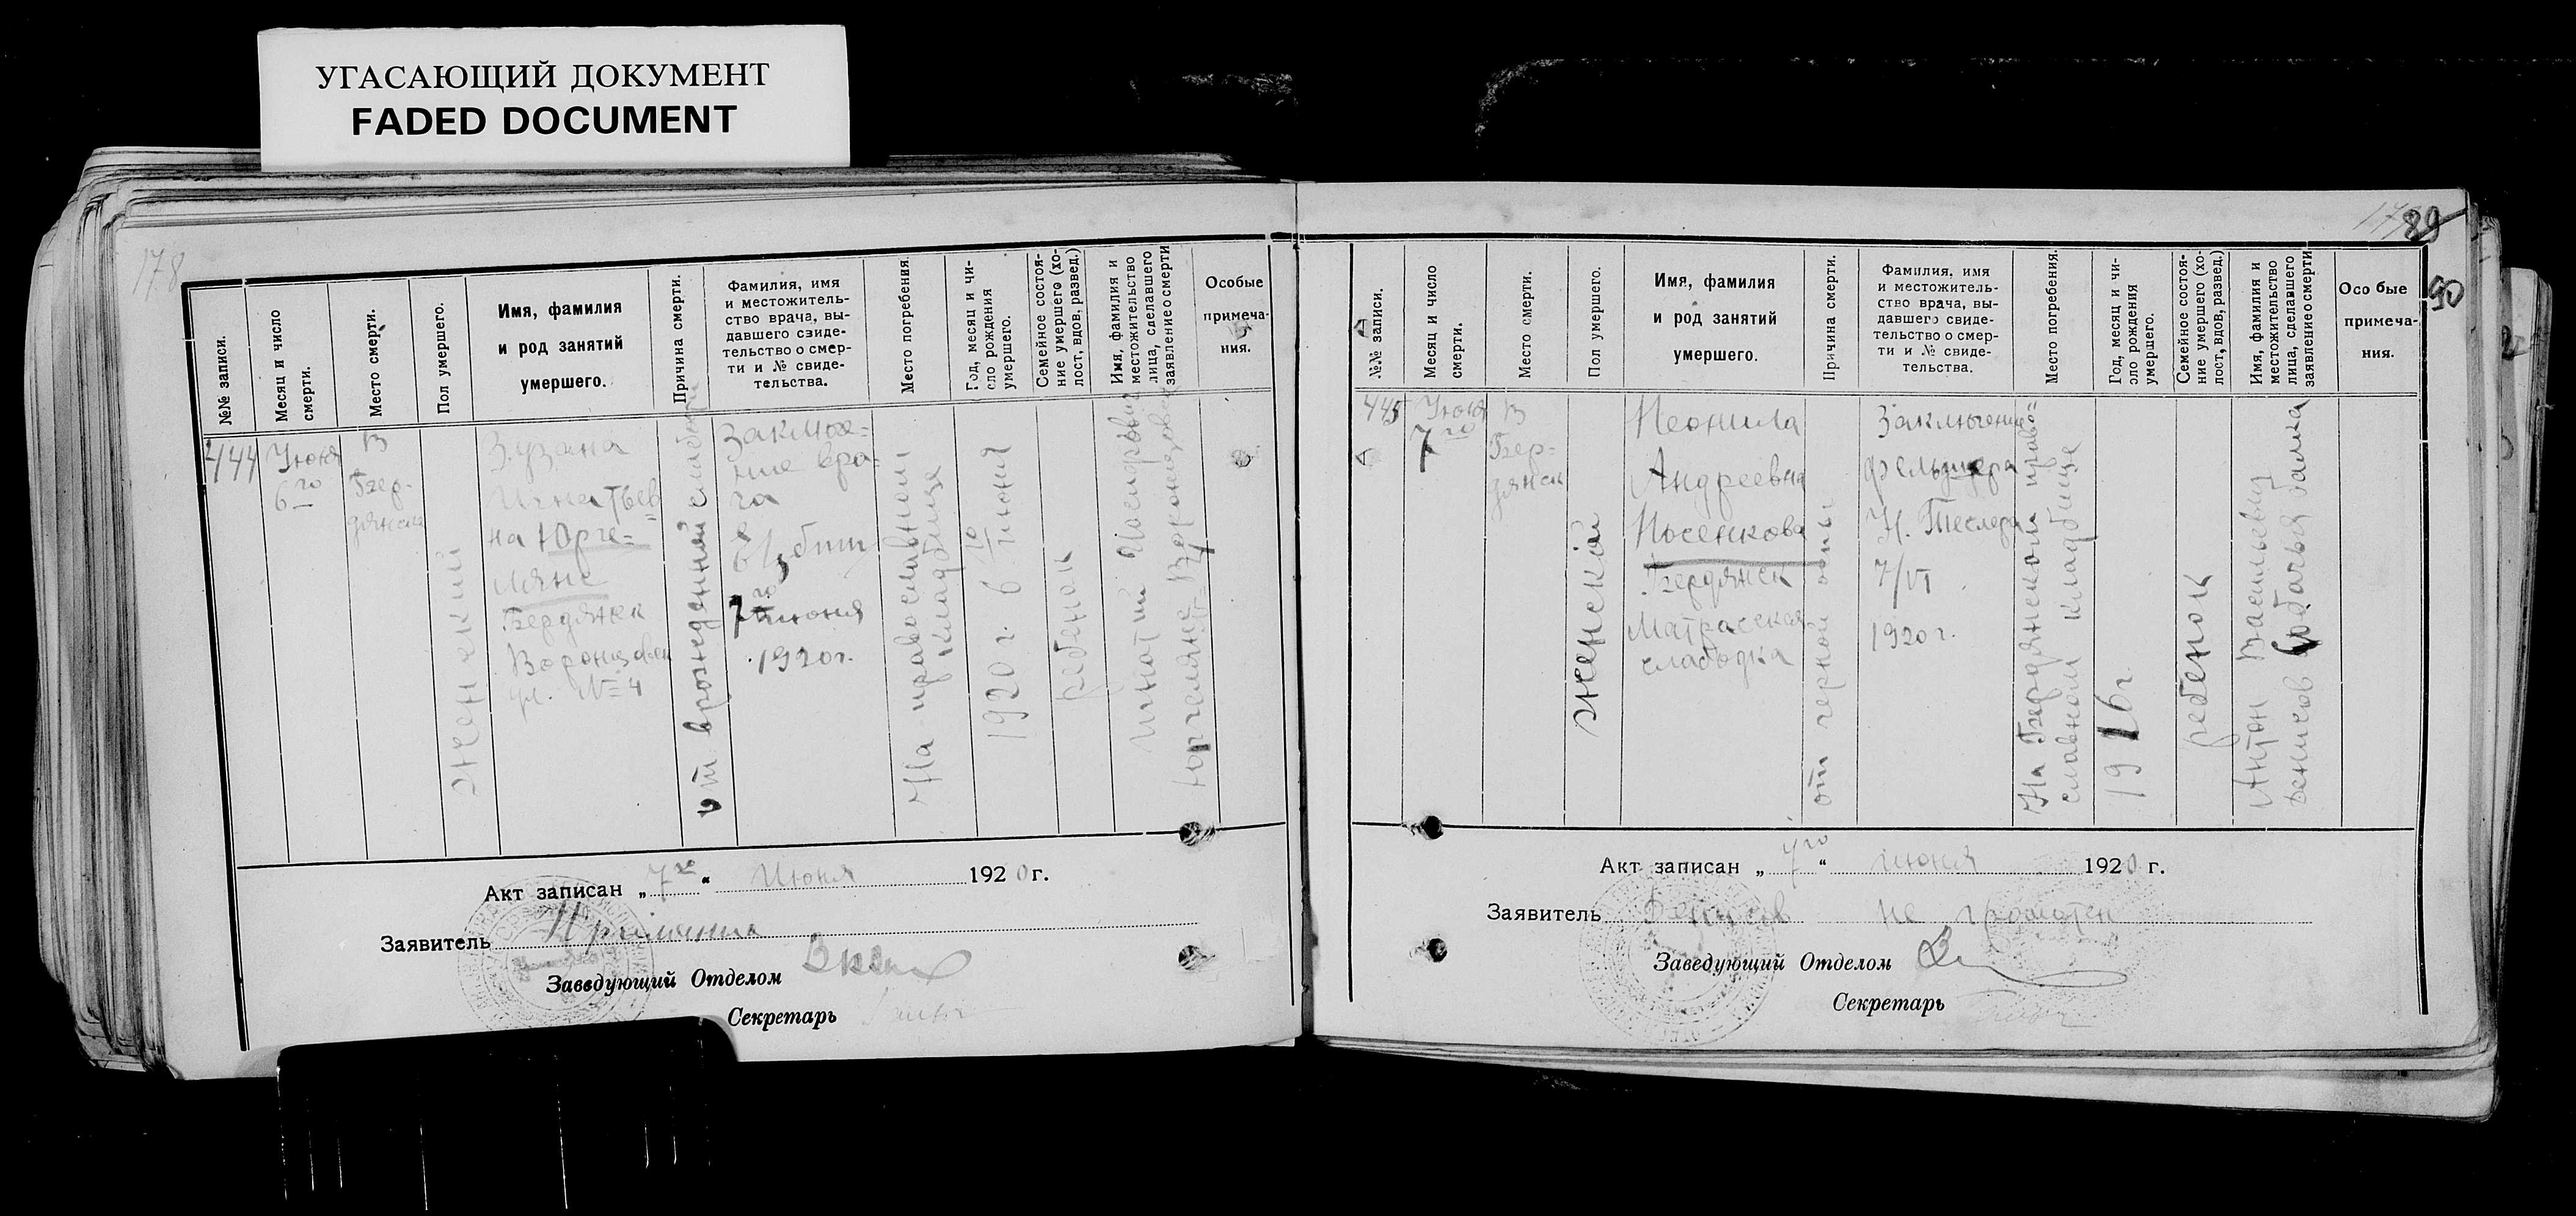 УГАСАЮЩИЙ ДОКУМЕНТ
FADED DOCUMENT
178
№№ записи.
Месяц и число
смерти.
Место смерти.
Пол умершего.
Имя, фамилия
и род занятий
умершего.
Причина смерти.
Фамилия, имя
и местожитель-
ство врача, вы-
давшего свиде-
тельство о смер-
ти и № свиде-
тельства.
Место погребения.
Год, месяц и чи-
сло рождения
умершего.
Семейное состоя-
ние умершего (хо-
лост, вдов, развед.)
Имя, фамилия и
местожительство
лица, сделавшего
заявление о смерти
Особые
примеча-
ния.
444
Июня
6го
В
Бер-
дянск
Женский
Зузана
Игнатьев=
на Юрге=
ляне
Бердянск
Воронцовск
ул. № 4
от врожденной слабости
Заключе=
ние вра=
ча
7го июня
1920г.
На православном
кладбище
1920 г. 6го июня
ребенок
Игнатий
Юргеляне
Акт записан „7го“ Июня 1920 г.
Заявитель
Заведующий Отделом
Секретарь
89
90
№№ записи.
Месяц и число
смерти.
Место смерти.
Пол умершего.
Имя, фамилия
и род занятий
умершего.
Причина смерти.
Фамилия, имя
и местожитель-
ство врача, вы-
давшего свиде-
тельство о смер-
ти и № свиде-
тельства.
Место погребения.
Год, месяц и чи-
сло рождения
умершего.
Семейное состоя-
ние умершего (хо-
лост, вдов, развед.)
Имя, фамилия и
местожительство
лица, сделавшего
заявление о смерти
Осо бые
примеча-
ния.
445
Июня
7го
В
Бер-
дянск
Женский
Неонила
Андреевна
Носенкова
Бердянск
Матросская
слабодка
от черной оспы
Заключение
фельдшера
Н. Теслера
7/VI
1920 г.
На Бердянском право=
славном кладбище
1916г.
ребенок
Антон Васильевич
Денисов Собачья балка
Акт записан „7го“ июня 1920 г.
Заявитель Денисов не грамотен
Заведующий Отделом
Секретарь